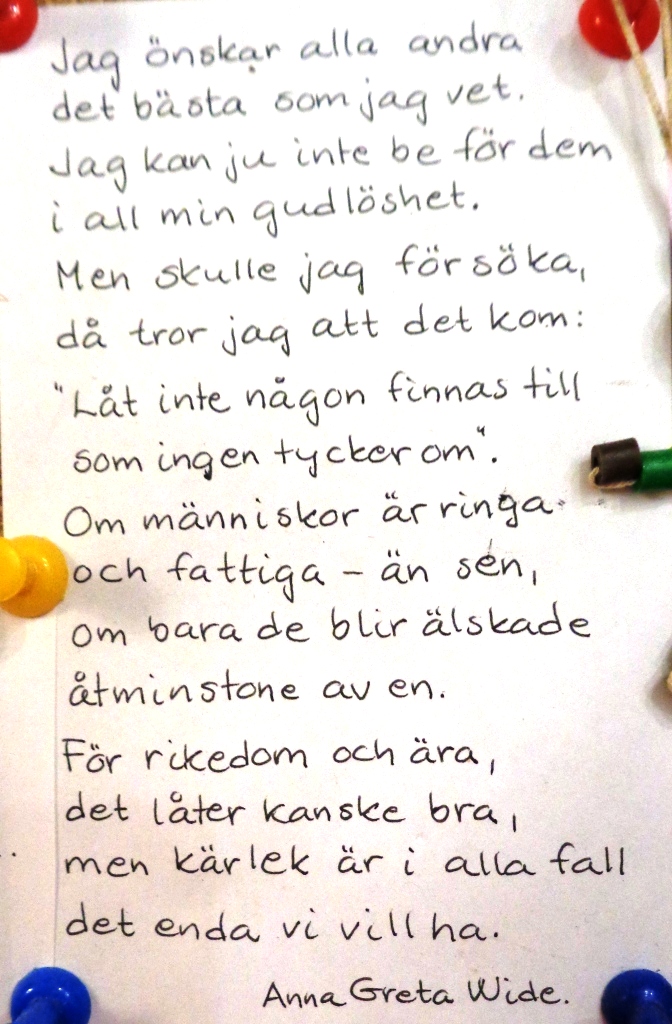 Jag önskar alla andra
det bästa som jag vet.
Jag kan ju inte be för dem
i all min gudlöshet.
Men skulle jag försöka,
då tror jag att det kom:
"Låt inte någon finnas till
som ingen tycker om".
Om människor är ringa
och fattiga – än sén,
om bara de blir älskade
åtminstone av en.
För rikedom och ära,
det låter kanske bra,
men kärlek är i alla fall
det enda vi vill ha.
Anna Greta Wide.